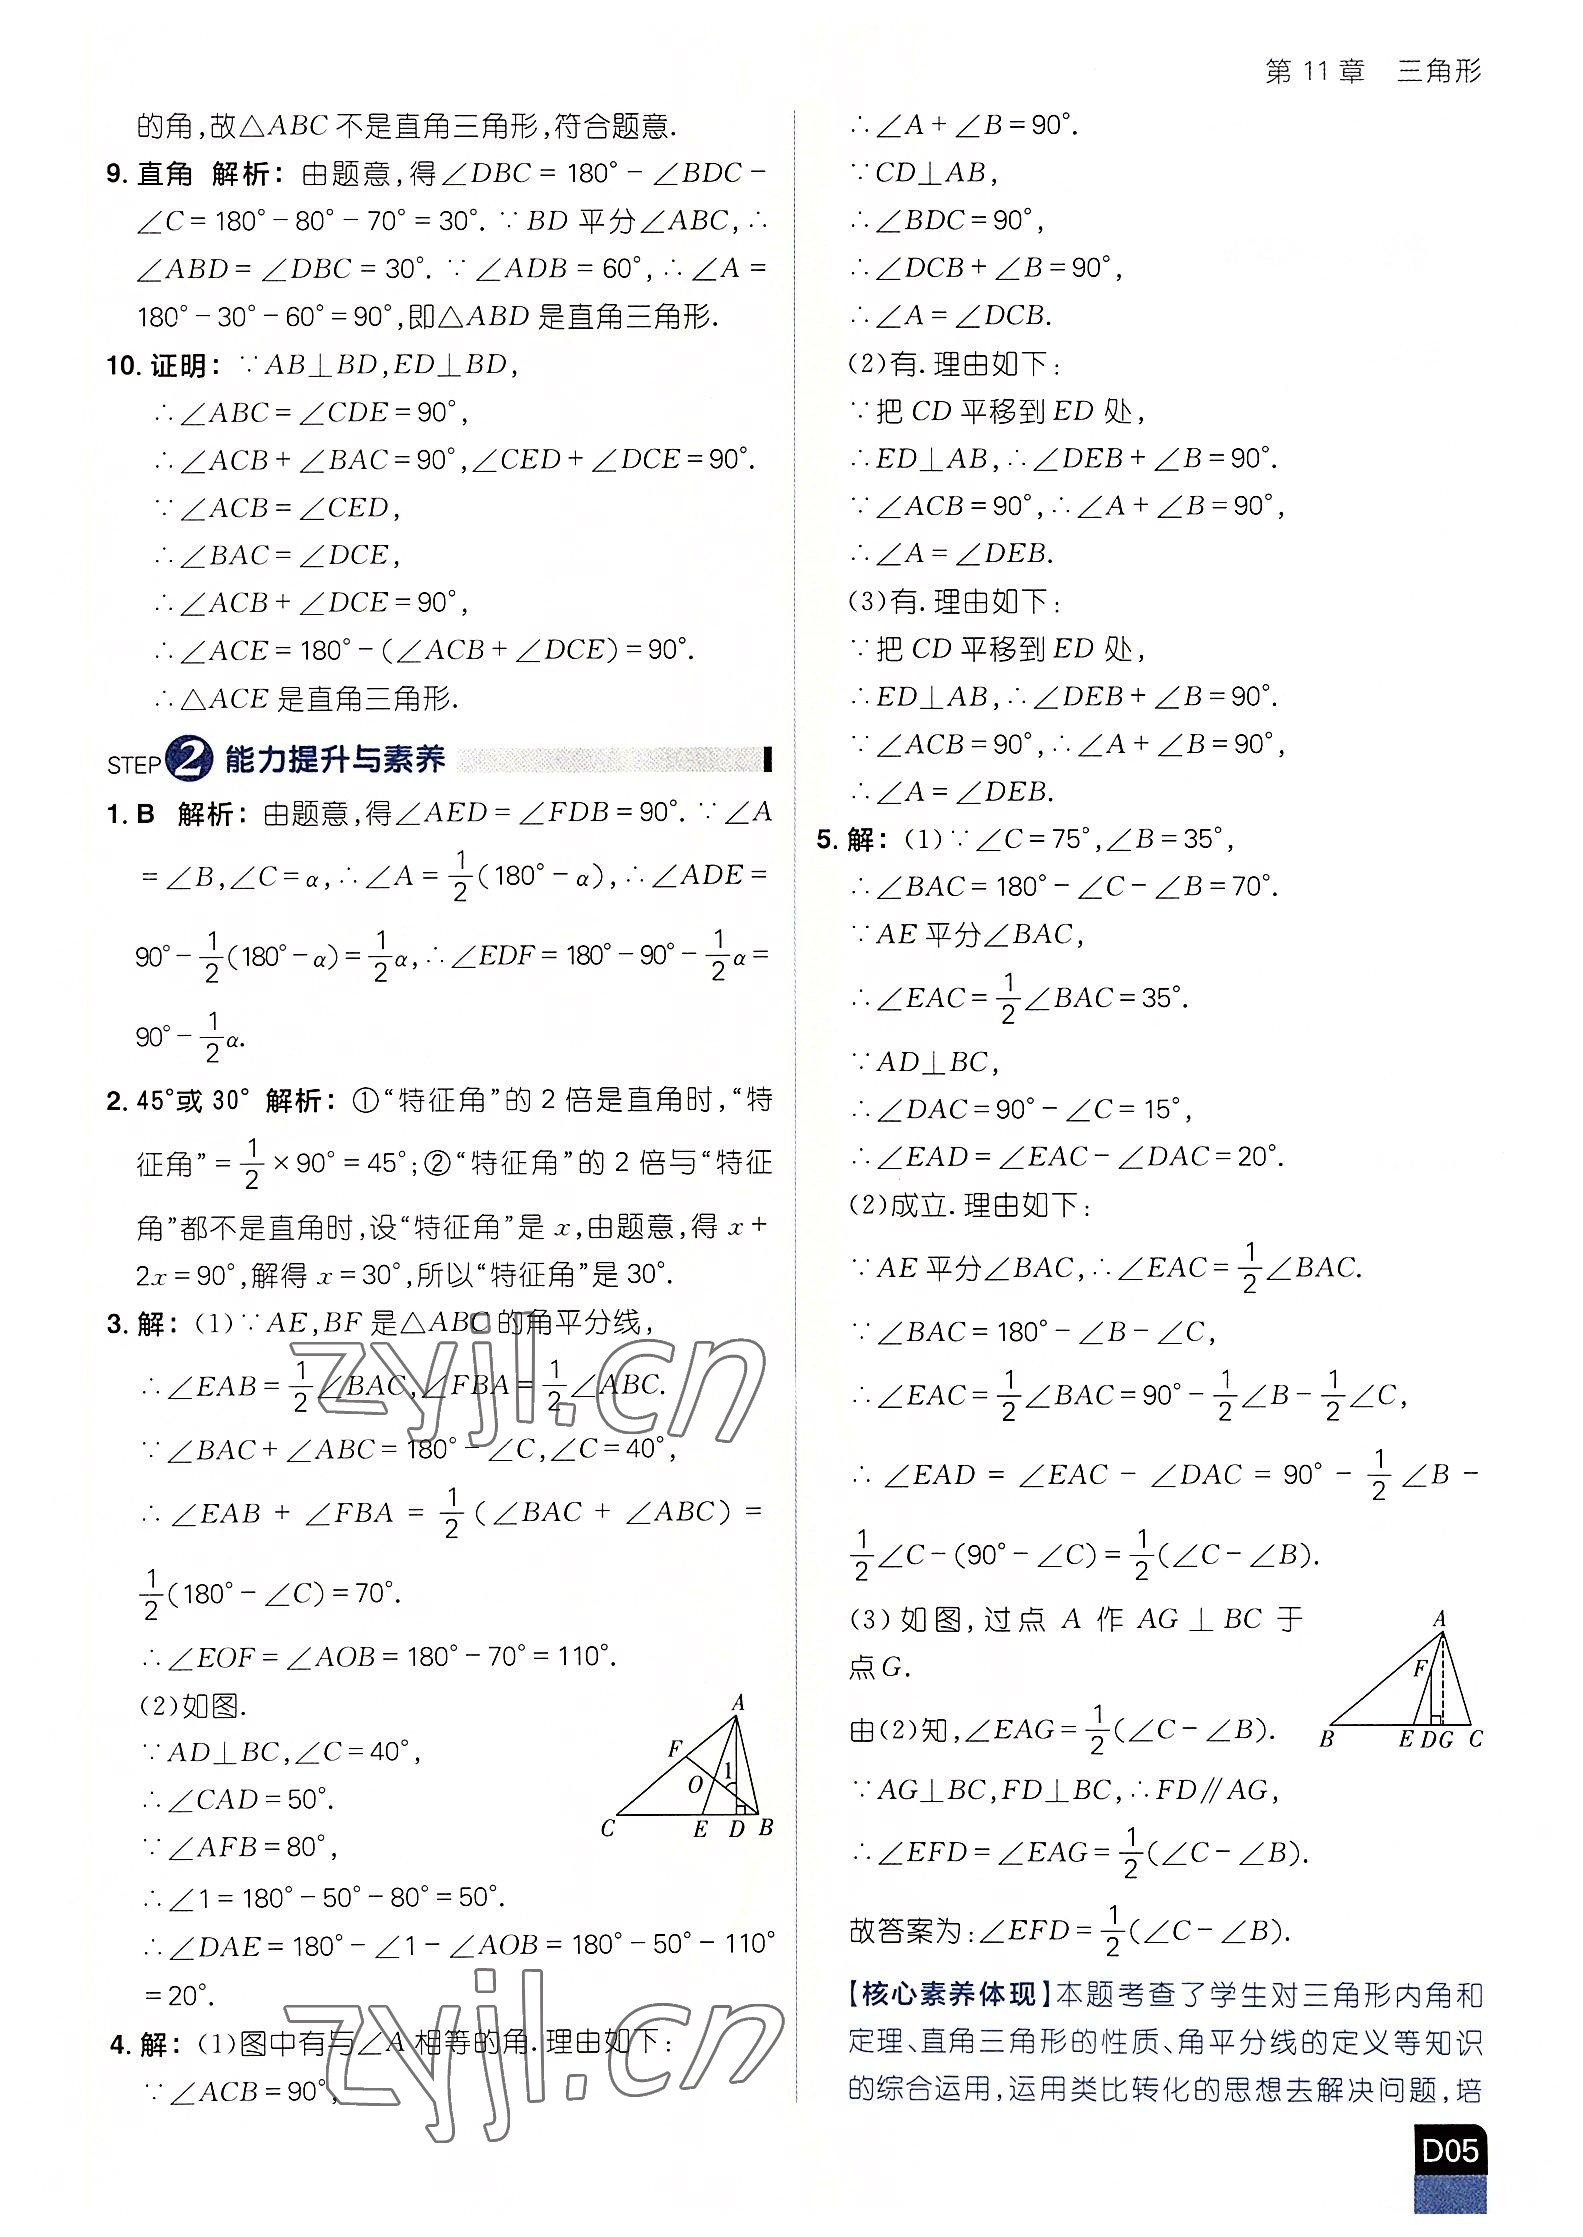 第 11 章 三角形
的角,故△ABC 不是直角三角形,符合题意.
9. 直角 解析: 由题意,得∠DBC = 180° - ∠BDC -
∠C = 180° - 80° - 70° = 30°. ∵ BD 平分∠ABC, ∴
∠ABD = ∠DBC = 30°. ∵ ∠ADB = 60°, ∴ ∠A =
180° - 30° - 60° = 90°,即△ABD 是直角三角形.
10. 证明: ∵ AB⊥BD,ED⊥BD,
∴ ∠ABC = ∠CDE = 90°,
∴ ∠ACB + ∠BAC = 90°,∠CED + ∠DCE = 90°.
∵ ∠ACB = ∠CED,
∴ ∠BAC = ∠DCE,
∴ ∠ACB + ∠DCE = 90°,
∴ ∠ACE = 180° - (∠ACB + ∠DCE) = 90°.
∴ △ACE 是直角三角形.
STEP 2 能力提升与素养
1. B 解析: 由题意,得∠AED = ∠FDB = 90°. ∵ ∠A
= ∠B,∠C = α, ∴ ∠A = 1/2(180° - α), ∴ ∠ADE =
90° - 1/2(180° - α) = 1/2α, ∴ ∠EDF = 180° - 90° - 1/2α =
90° - 1/2α.
2. 45°或 30° 解析: ①“特征角”的 2 倍是直角时,“特
征角” = 1/2 × 90° = 45°;②“特征角”的 2 倍与“特征
角”都不是直角时,设“特征角”是 x,由题意,得 x +
2x = 90°,解得 x = 30°,所以“特征角”是 30°.
3. 解: (1)∵ AE,BF 是△ABC 的角平分线,
∴ ∠EAB = 1/2∠BAC,∠FBA = 1/2∠ABC.
∵ ∠BAC + ∠ABC = 180° - ∠C,∠C = 40°,
∴ ∠EAB + ∠FBA = 1/2(∠BAC + ∠ABC) =
1/2(180° - ∠C) = 70°.
∴ ∠EOF = ∠AOB = 180° - 70° = 110°.
(2)如图.
∵ AD⊥BC,∠C = 40°,
∴ ∠CAD = 50°.
∵ ∠AFB = 80°,
∴ ∠1 = 180° - 50° - 80° = 50°.
∴ ∠DAE = 180° - ∠1 - ∠AOB = 180° - 50° - 110°
= 20°.
A
F
O 1
C E D B
4. 解: (1)图中有与∠A 相等的角.理由如下:
∵ ∠ACB = 90°,
∴ ∠A + ∠B = 90°.
∵ CD⊥AB,
∴ ∠BDC = 90°,
∴ ∠DCB + ∠B = 90°,
∴ ∠A = ∠DCB.
(2)有.理由如下:
∵ 把 CD 平移到 ED 处,
∴ ED⊥AB, ∴ ∠DEB + ∠B = 90°.
∵ ∠ACB = 90°, ∴ ∠A + ∠B = 90°,
∴ ∠A = ∠DEB.
(3)有.理由如下:
∵ 把 CD 平移到 ED 处,
∴ ED⊥AB, ∴ ∠DEB + ∠B = 90°.
∵ ∠ACB = 90°, ∴ ∠A + ∠B = 90°,
∴ ∠A = ∠DEB.
5. 解: (1)∵ ∠C = 75°,∠B = 35°,
∴ ∠BAC = 180° - ∠C - ∠B = 70°.
∵ AE 平分∠BAC,
∴ ∠EAC = 1/2∠BAC = 35°.
∵ AD⊥BC,
∴ ∠DAC = 90° - ∠C = 15°,
∴ ∠EAD = ∠EAC - ∠DAC = 20°.
(2)成立.理由如下:
∵ AE 平分∠BAC, ∴ ∠EAC = 1/2∠BAC.
∵ ∠BAC = 180° - ∠B - ∠C,
∴ ∠EAC = 1/2∠BAC = 90° - 1/2∠B - 1/2∠C,
∴ ∠EAD = ∠EAC - ∠DAC = 90° - 1/2∠B -
1/2∠C - (90° - ∠C) = 1/2(∠C - ∠B).
(3)如图,过点 A 作 AG⊥BC 于
点G.
由(2)知,∠EAG = 1/2(∠C - ∠B).
A
F
B E D G C
∵ AG⊥BC,FD⊥BC, ∴ FD∥AG,
∴ ∠EFD = ∠EAG = 1/2(∠C - ∠B).
故答案为:∠EFD = 1/2(∠C - ∠B).
【核心素养体现】本题考查了学生对三角形内角和
定理、直角三角形的性质、角平分线的定义等知识
的综合运用,运用类比转化的思想去解决问题,培
D05
zyjl.cn
zyjl.cn